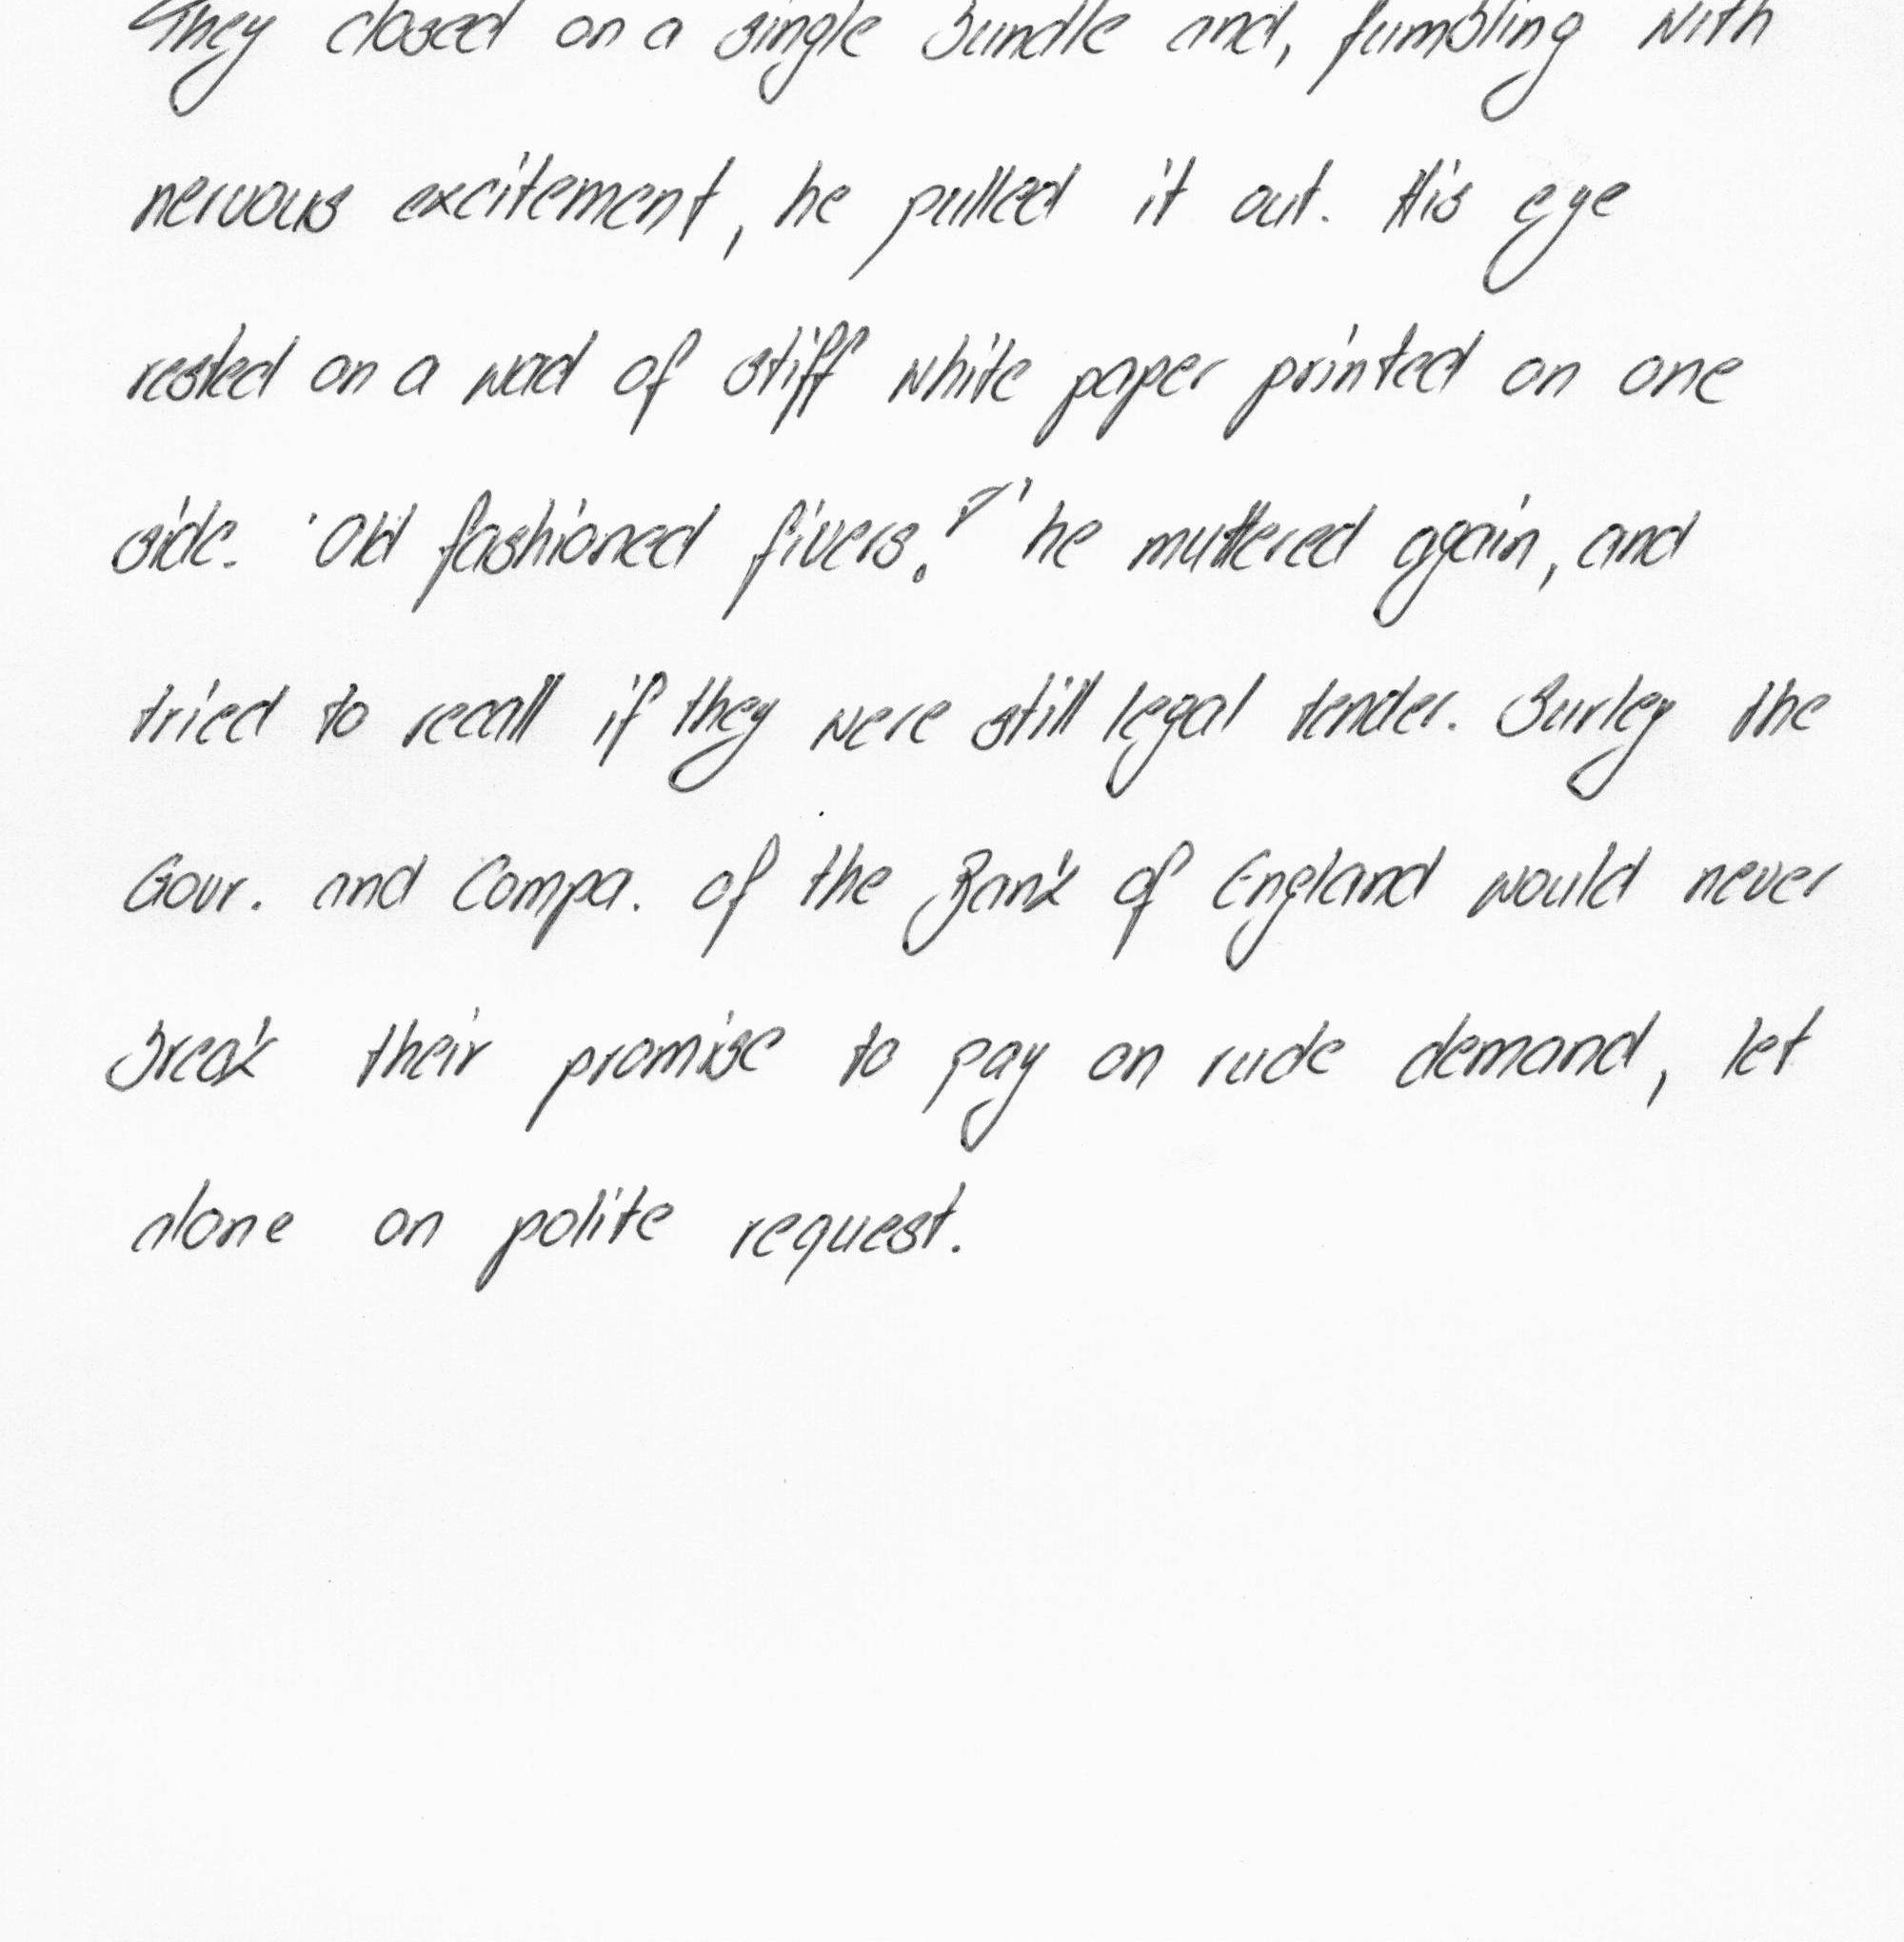 They closed on a single bundle and, fumbling with
nervous excitement, he pulled it out. His eye
rested on a wad of stiff white paper printed on one
side. 'Old fashioned fivers?' he muttered again, and
tried to recall if they were still legal tender. Surley the
Govr. and Compa. of the Bank of England would never
break their promise to pay on rude demand, let
alone on polite request.